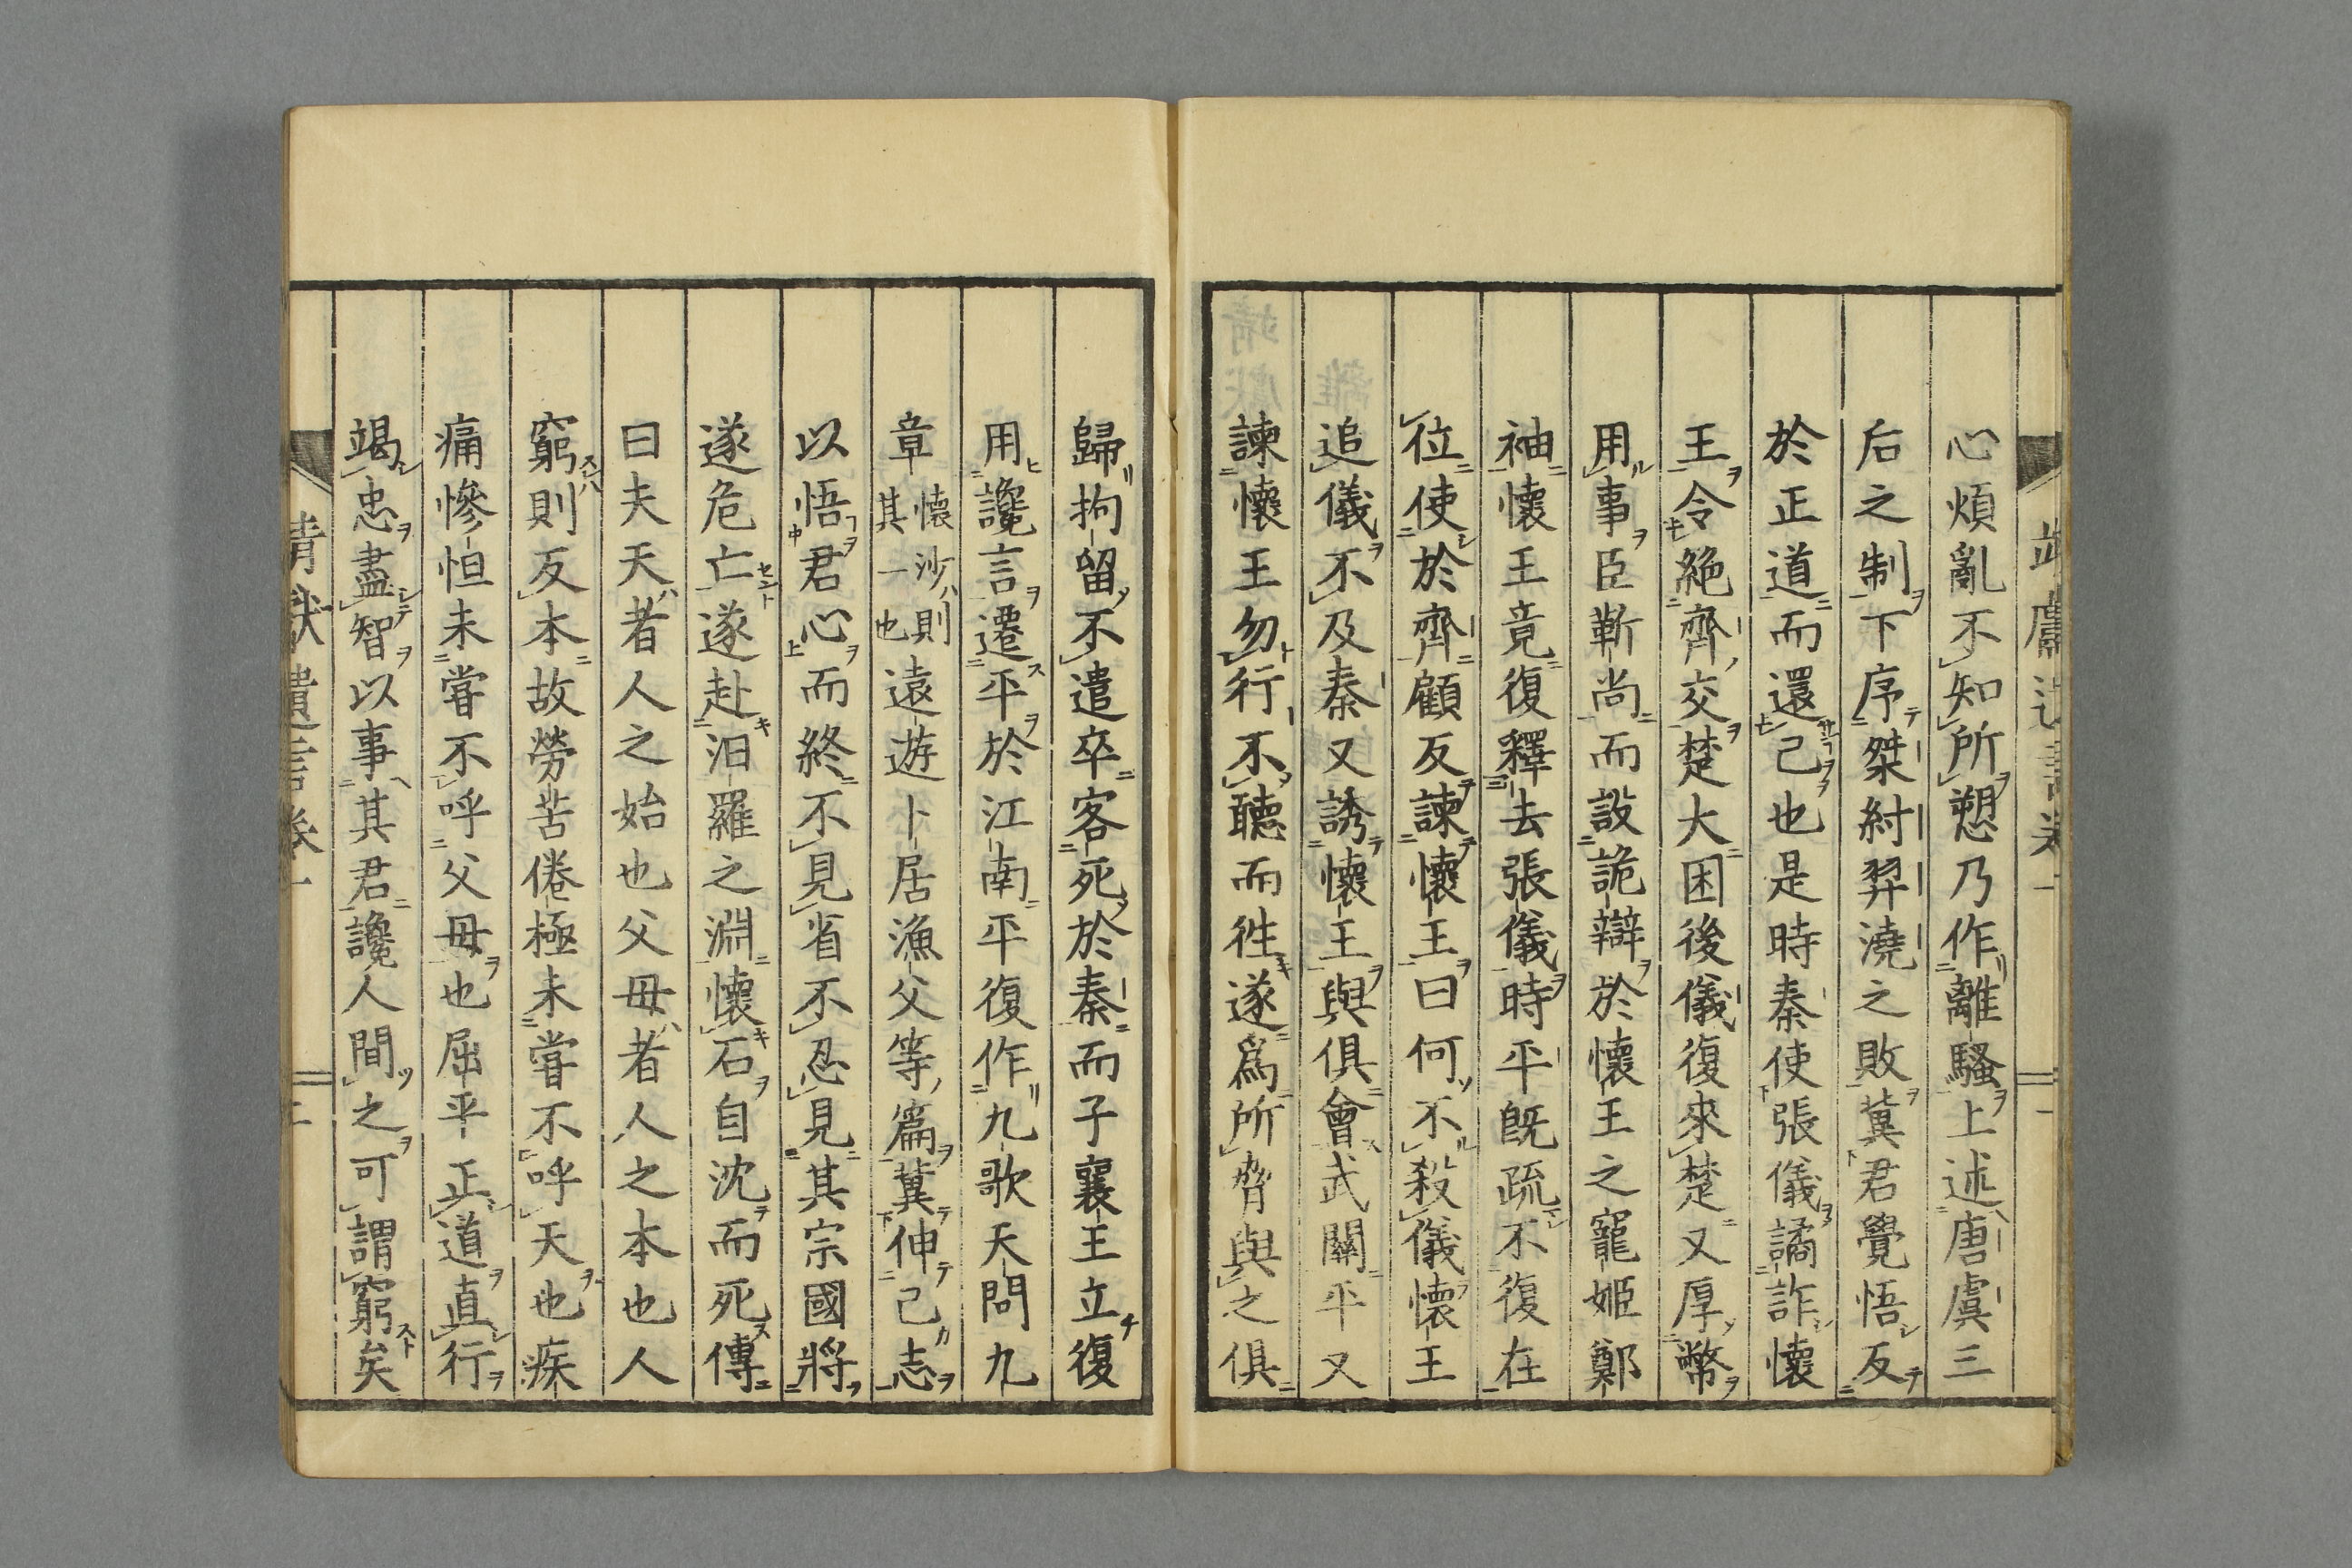 心煩亂不知所愬乃作離騷上述唐虞三
后之制下序桀紂羿澆之敗冀君覺悟反
於正道而還己也是時秦使張儀譎詐懷
王令絕齊交楚大困後儀復來楚又厚幣
用事臣靳尚而設詭辯於懷王之寵姬鄭
袖懷王竟復釋去張儀時平既疏不復在
位使於齊顧反諫懷王曰何不殺儀懷王
追儀不及秦又誘懷王與俱會武關平又
諫懷王勿行不聽而往遂爲所脅與之俱
歸拘留不遣卒客死於秦而子襄王立復
用讒言遷平於江南平復作九歌天問九
章懷沙則其一也遠遊卜居漁父等篇冀伸己志
以悟君心而終不見省不忍見其宗國將
遂危亡遂赴汨羅之淵懷石自沈而死傳
曰夫天者人之始也父母者人之本也人
窮則反本故勞苦倦極未嘗不呼天也疾
痛慘怛未嘗不呼父母也屈平正道直行
竭忠盡智以事其君讒人間之可謂窮矣
靖獻遺言卷一